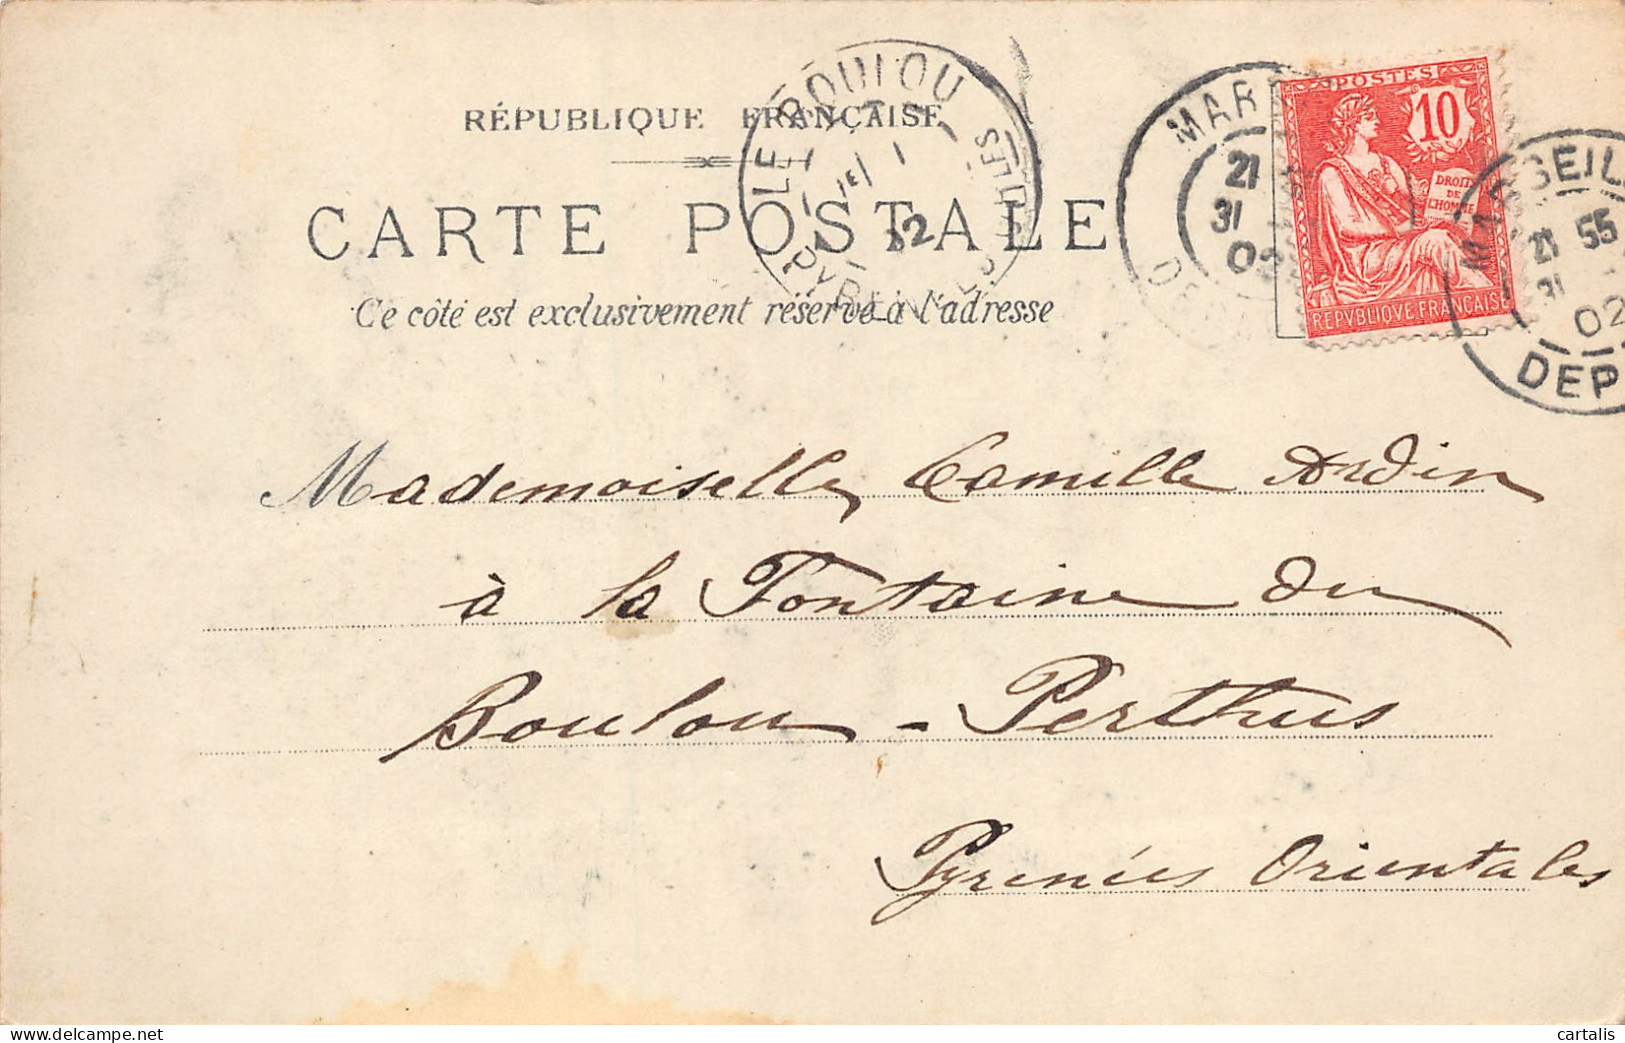 RÉPUBLIQUE FRANÇAISE
CARTE POSTALE
Ce côté est exclusivement réservé à l'adresse
LE BOULOU
1
02
MAR
21
31
02
POSTES
10
DROITS
DE
L'HOMME
REPVBLIQVE FRANÇAISE
MARSEILL
21 55
31
02
DEP
Mademoiselle Camille Ardin
à la Fontaine du
Boulou - Perthus
Pyrénées Orientales
www.delcampe.net
cartalis